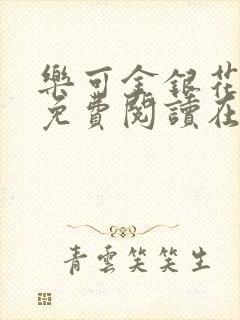 樂可金銀花
免費閱讀在
青雲笑笑生